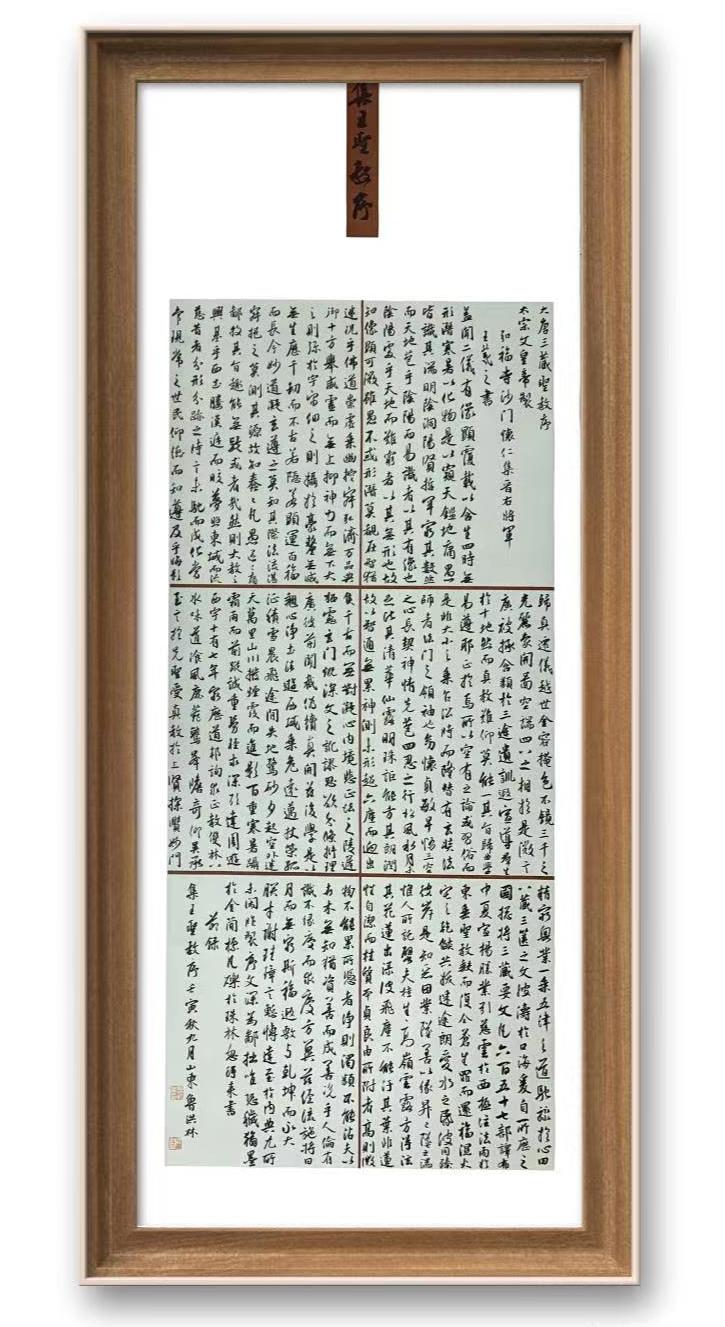 集王聖教序
大唐三藏聖教序
太宗文皇帝製
弘福寺沙门懷仁集晉右將軍
王羲之書
蓋聞二儀有像顯覆載以含生四時無
形潛寒暑以化物是以窺天鑑地庸愚
皆識其端明陰洞陽賢哲罕窮其數然
而天地苞乎陰陽而易識者以其有像也
陰陽處乎天地而難窮者以其無形也故
知像顯可徵雖愚不惑形潛莫覩在智猶
迷况乎佛道崇虚乘幽控寂弘濟万品典
御十方舉威靈而無上抑神力而無下大
之則弥於宇宙細之則攝於豪釐無滅
無生歷千劫而不古若隱若顯運百福
而長今妙道凝玄遵之莫知其際法流湛
寂挹之莫測其源故知蠢蠢凡愚區區庸
鄙投其旨趣能無疑或者哉然則大教之
興基乎西土騰漢庭而皎夢照東域而流
慈昔者分形分跡之時言未馳而成化當
常現常之世民仰德而知遵及乎晦影
歸真遷儀越世金容掩色不镜三千之
光麗象開圖空端四八之相於是微言
廣被拯含類於三途遺訓遐宣導群生
於十地然而真教難仰莫能一其旨歸曲學
易遵耶正於焉所以空有之論或習俗而
是非大小之乘乍沿時而隆替有玄奘法
師者法門之領袖也幼懷貞敏早悟三空
之心長契神情先苞四忍之行松風水月未
足比其清華仙露明珠詎能方其朗潤
故以智通無累神測未形超六塵而迥出
隻千古而無對凝心内境悲正法之陵遲
栖慮玄門慨深文之訛謬思欲分條析理
廣彼前聞截偽續真開茲後學是以
翹心淨土法遊西域乘危遠邁杖策孤
征積雪晨飛途間失地驚砂夕起空外迷
天萬里山川撥煙霞而進影百重寒暑躡
霜雨而前蹤誠重勞輕求深引達周遊
西宇十有七年窮歷道邦詢求正教雙林八
水味道飡風鹿菀鷲峯瞻奇仰異承
至言於先聖受真教於上賢探賾妙門
精窮奥業一乘五律之道馳驟於心田
八藏三篋之文波濤於口海爰自所歷之
國揔將三藏要文凡六百五十七部譯布
中夏宣揚勝業引慈雲於西極注法雨於
東垂聖教缺而復全蒼生罪而還福濕火
宅之乾燄共拔迷途朗愛水之昏波同臻
彼岸是知惡因業墜善以緣昇昇墜之端
惟人所託譬夫桂生高嶺雲露方得泫
其花蓮出淥波飛塵不能汙其葉非蓮
性自潔而桂質本貞良由所附者高則微
物不能累所憑者淨則濁類不能沾夫以
卉木無知猶資善而成善况乎人倫有
識不緣慶而求慶方冀茲經流施將日
月而無窮斯福遐敷与乾坤而永大
朕才謝珪璋言慙博達至於内典尤所
未閑昨製序文深為鄙拙唯恐穢翰墨
於金簡標瓦礫於珠林忽得来書
節録
集王聖教序壬寅秋九月山東魯洪林